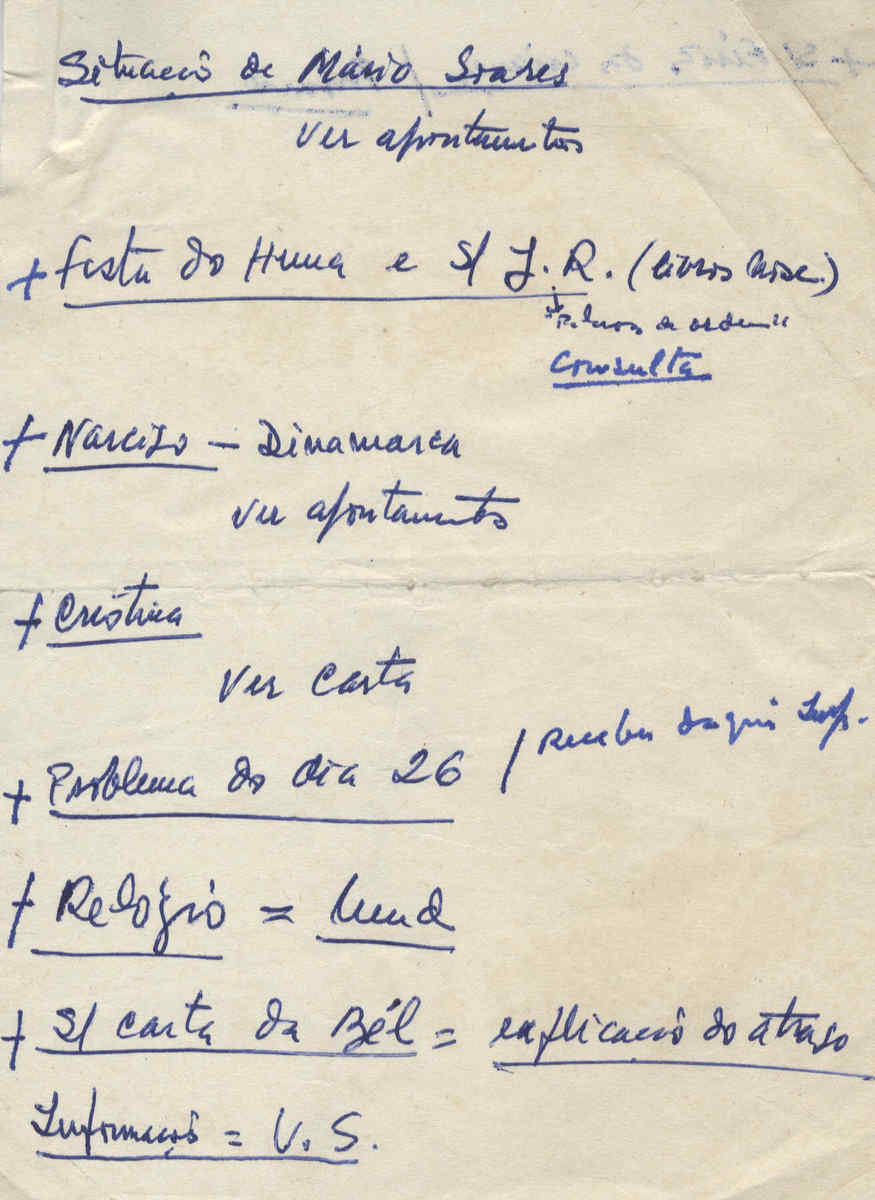 Situação de Mário Soares
Ver apontamentos
+ Festa do Huma e s/ J. R. (livros
Consulta
+ Narciso — Dinamarca
Ver apontamentos
+ Cristina
Ver Carta
+ Problema do dia 26 / Receber daqui Inf.
+ Relógio =
+ S/ carta da Bél = explicação do atraso
Informação = V. S.